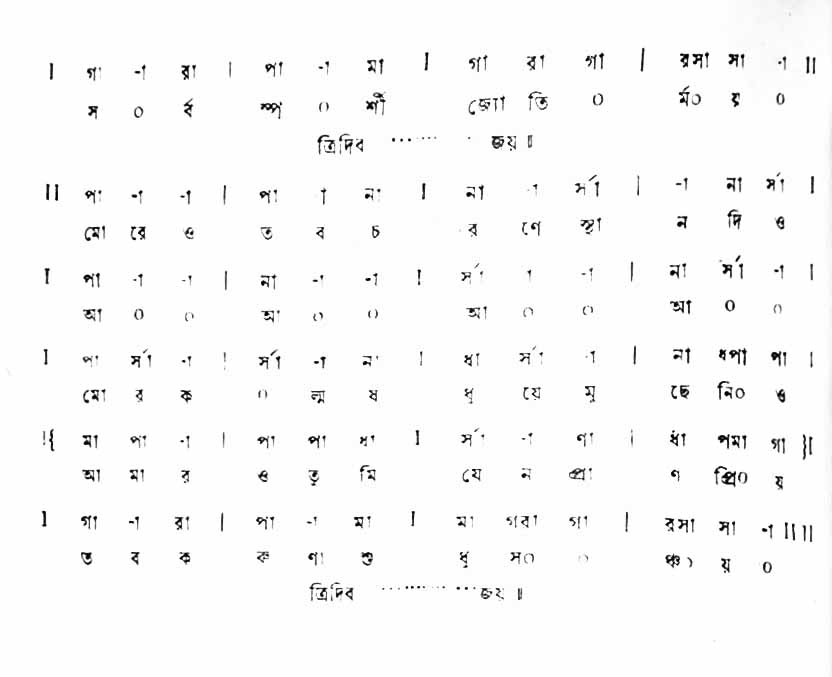 I গা -া রা | পা -া মা I গা রা গা | রসা সা -া II
স ০ র্ব স্প ০ র্শী জ্যো তি ০ র্ম০ য় ০
ত্রিদিব ......... জয় ॥
II পা -া -া | পা -া না I না -া র্সা | -া না র্সা I
মো রে ও ত ব চ র ণে স্থা ন দি ও
I পা -া -া | না -া -া I র্সা -া -া | না র্সা -া I
আ ০ ০ আ ০ ০ আ ০ ০ আ ০ ০
I পা র্সা -া | র্সা -া না I ধা র্সা -া | না ধপা পা I
মো র ক ০ ল্ম ষ ধু য়ে মু ছে নি০ ও
I{ মা পা -া | পা পা ধা I র্সা -া ণা | ধা পমা গা }I
আ মা র ও তু মি যে ন প্রা ণ প্রি০ য়
I গা -া রা | পা -া মা I মা গরা গা | রসা সা -া II II
ত ব ক রু ণা শু ধু স০ ০ ঞ্চ০ য় ০
ত্রিদিব ......... জয় ॥